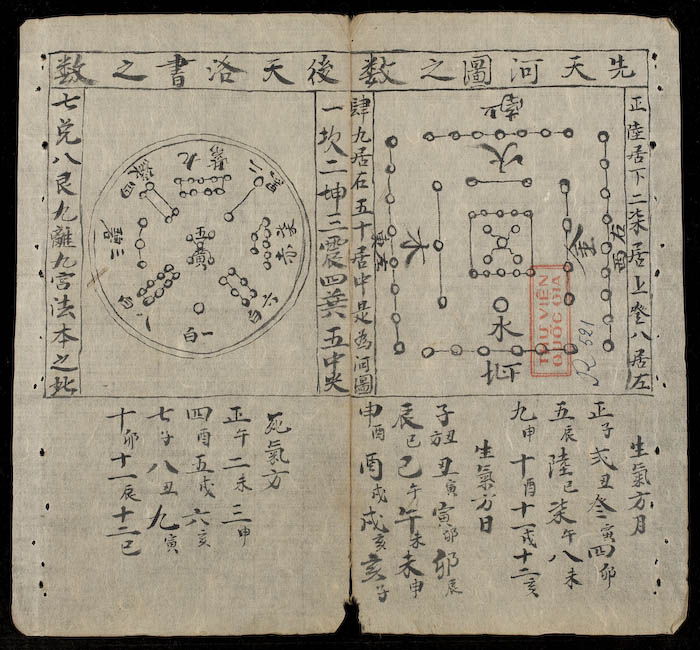 先天河圖之数
正陸居下二柒居上叄八居左
南上
火
金
右西
木
東左
水
THƯ VIỆN
QUỐC GIA
R.521
肆九居右五十居中是為河圖
後天洛書之数
一坎二坤三震四巽五中央
九
四綠
五黃
三碧
柒赤
六白
一白
七兌八艮九離九宮法本之北
生氣方月
正子弍丑叄寅四卯
五辰陸巳柒午八未
九申十酉十一戌十二亥
生氣方日
子方丑丑寅寅卯卯辰
辰巳巳午午未未申
申酉酉戌戌亥亥子
死氣方
正午二未三申
四酉五戌六亥
七子八丑九寅
十卯十一辰十二巳